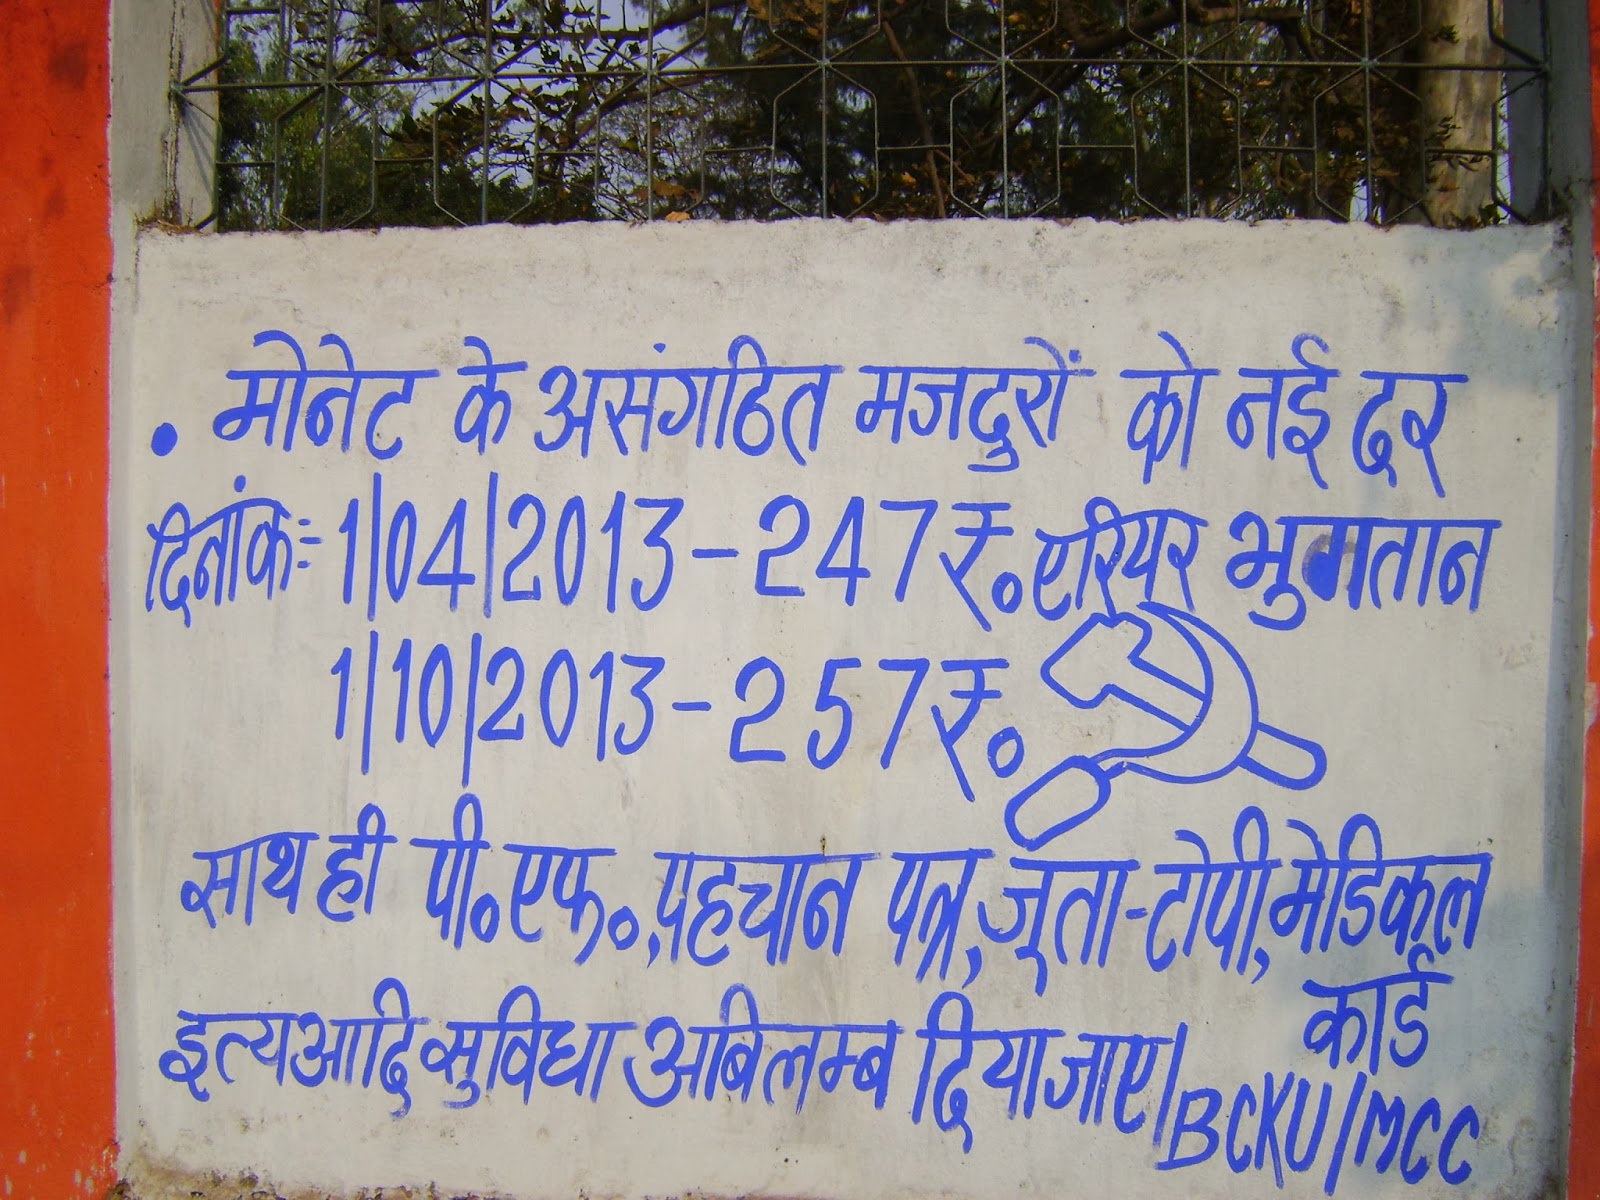 • मोनेट के असंगठित मजदुरों को नई दर
दिनांकः- 1/04/2013 - 247 रु. एरियर भुगतान
1/10/2013 - 257 रु.
साथ ही पी॰ एफ॰, पहचान पत्र, जूता-टोपी, मेडिकल
कार्ड
इत्यआदि सुविधा अबिलम्ब दिया जाए।
BCKU/MCC